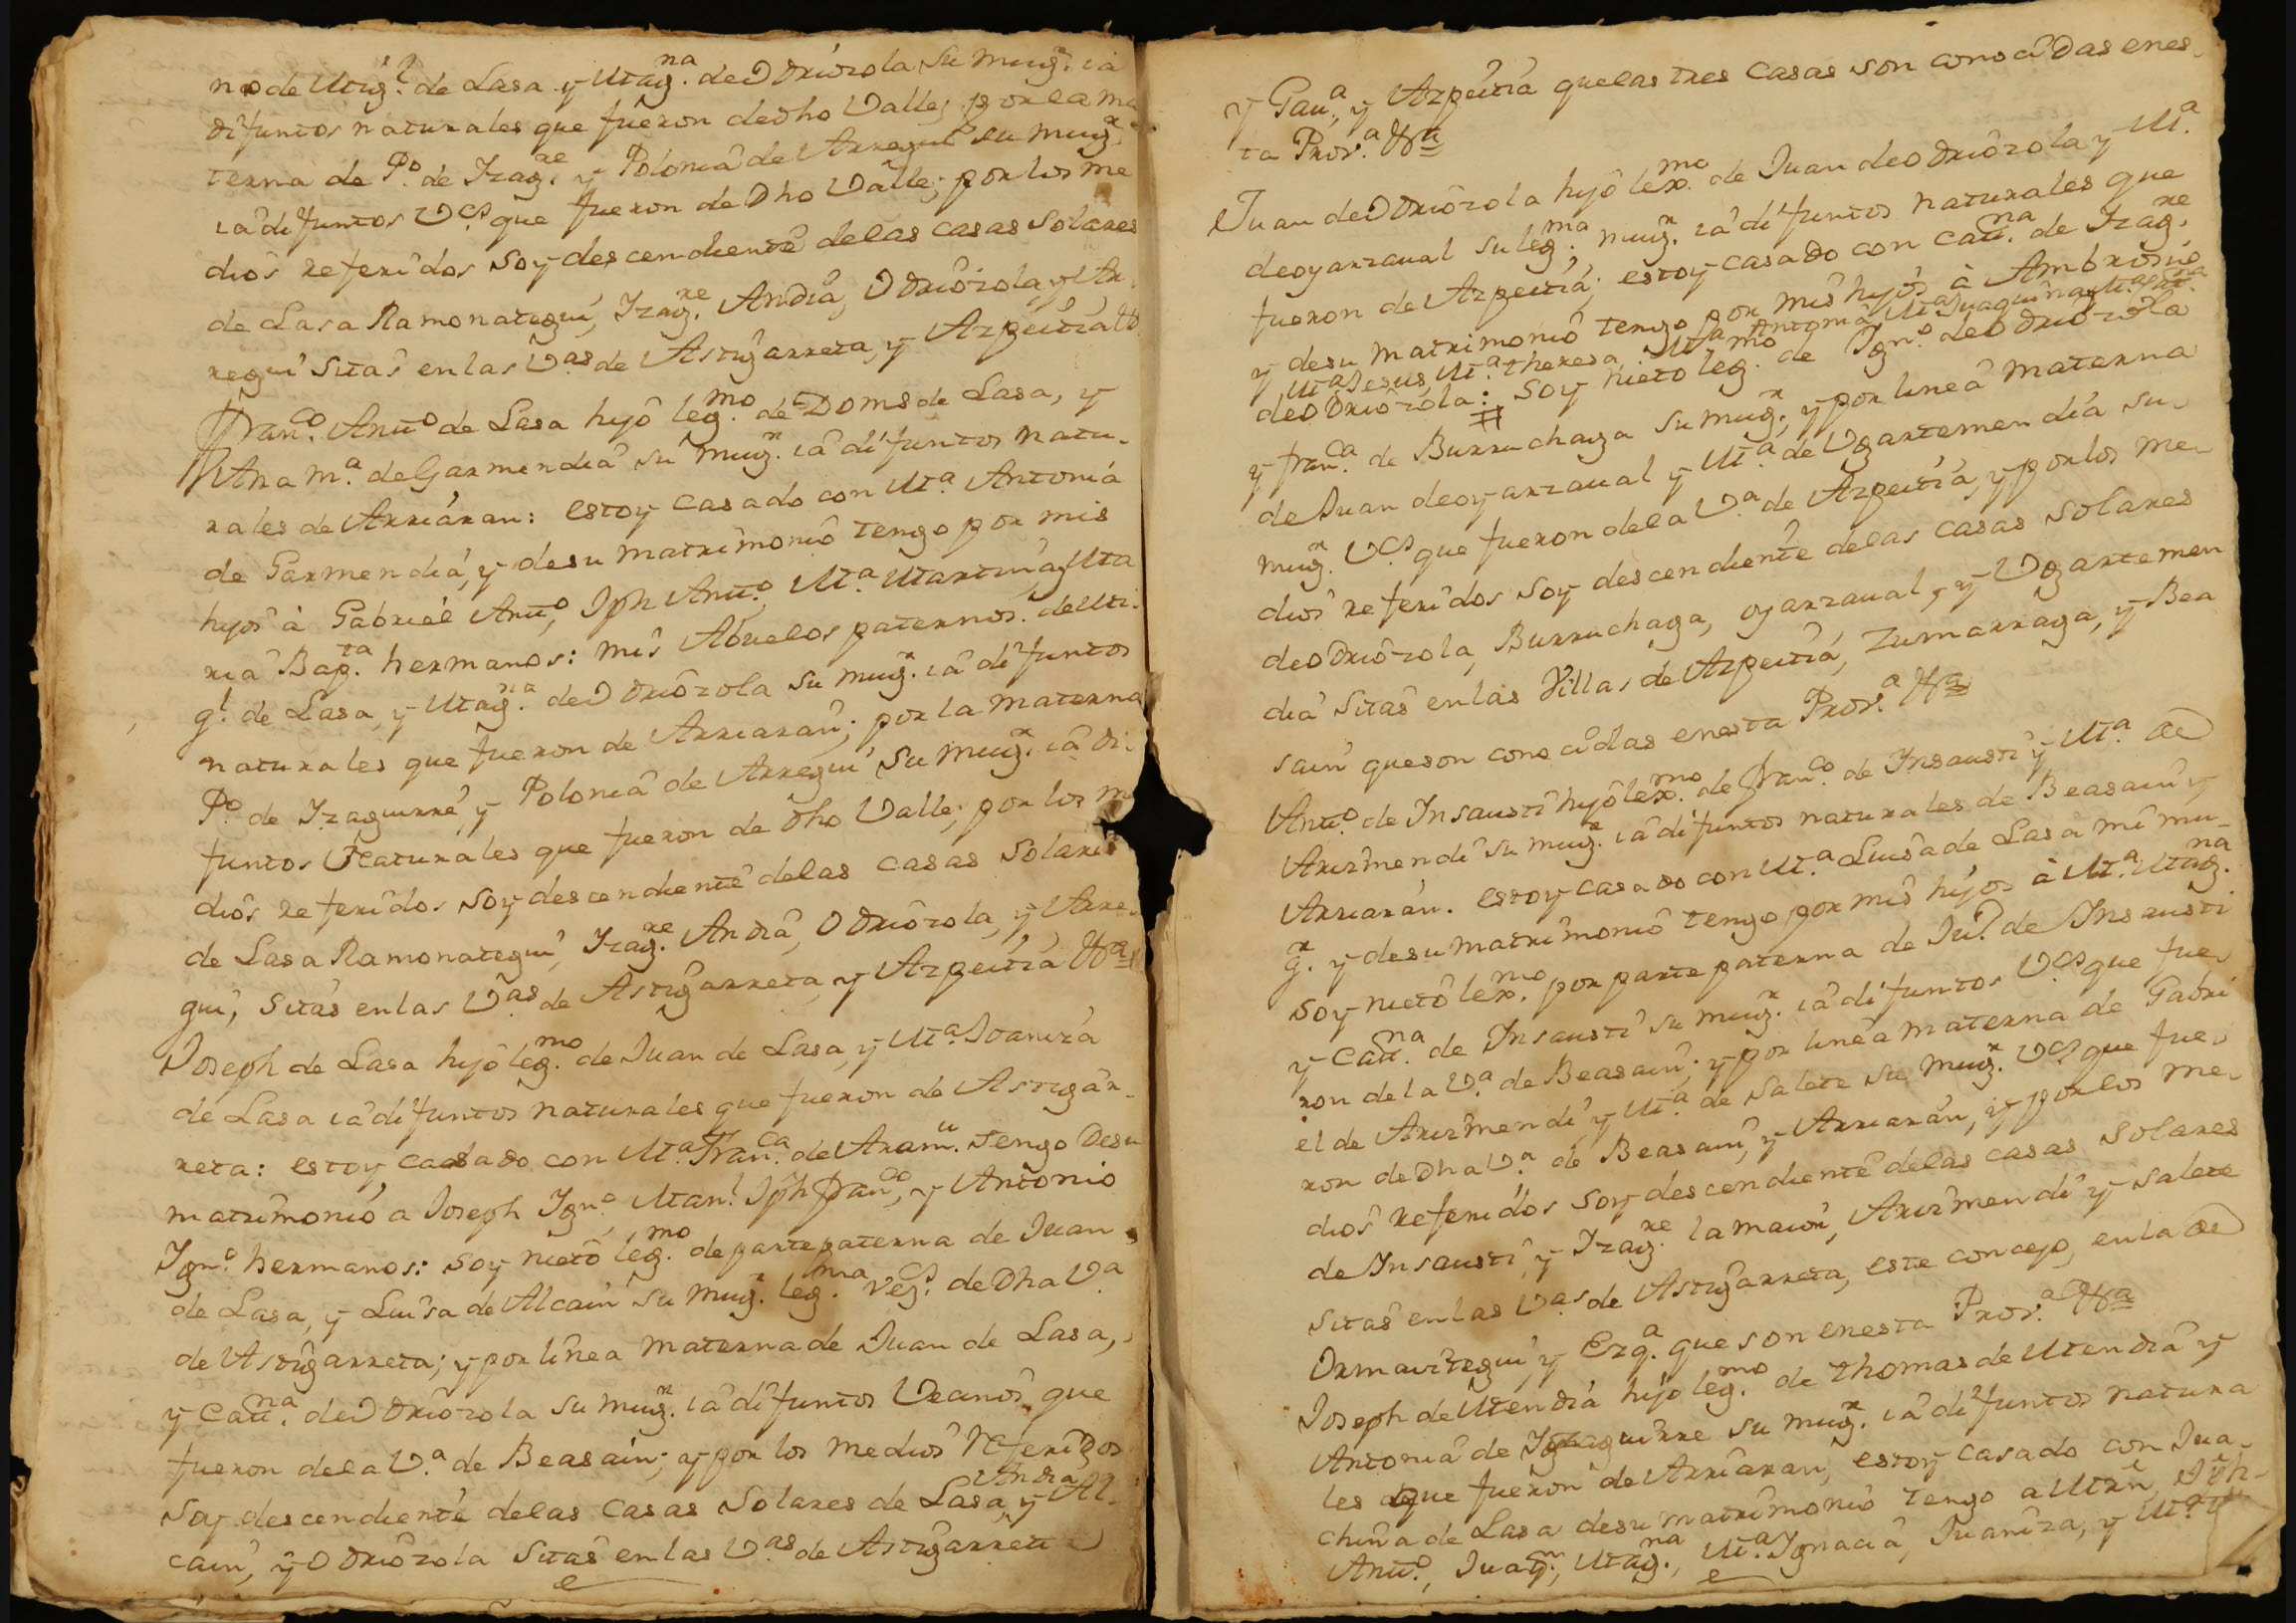 no de Mig.l de Lasa y Mag.na de Odriozola su mug.r ia
difuntos naturales que fueron de dho Valle; por la ma
terna de P.o de Izag.re y Polonia de Arregui su mug.r
ia difuntos V.cs que fueron de Dho Valle; por los me
dios referidos soy descendiente de las casas solares
de Lasa Ramonategui, Izag.re Andia, Odriozola, y Ar
regui sitas en las V.as de Astigarreta, y Azpeitia
Fran.co Ant.o de Lasa hijo leg.mo de Doms de Lasa, y
Ana M.a de Garmendia su mug.r ia difuntos natu-
rales de Arriaran: estoy casado con M.a Antonia
de Garmendia, y de su matrimonio tengo por mis
hijos à Gabriel Ant.o, Jph Ant.o, M.a Martina, y Ma
ria Bap.ta hermanos: mis Abuelos paternos de Mi-
g.l de Lasa, y Mag.na de Odriozola su mug.r ia difuntos
naturales que fueron de Arriaran; por la materna
P.o de Izaguirre, y Polonia de Arregui su mug.r ia di-
funtos Naturales que fueron de dho Valle; por los m
dios referidos soy descendiente de las casas solares
de Lasa Ramonategui, Izag.re Andia, Odriozola, y Arre-
gui, sitas en las V.as de Astigarreta y Azpeitia
Joseph de Lasa hijo leg.mo de Juan de Lasa, y M.a Joaniza
de Lasa ia difuntos naturales que fueron de Astigar-
reta: estoy casado con M.a Fran.ca de Aram.u tengo Desu
matrimonio a Joseph Ign.o Man.l Jph Fran.co, y Antonio
Ign.o hermanos: soy nieto leg.mo de parte paterna de Juan
de Lasa, y Luisa de Alcain su mug.r leg.ma veg.s de Dha V.a
de Astigarreta; y por linea materna de Juan de Lasa,
y Catt.na de Odriozola su mug.r ia difuntos Vecinos que
fueron de la V.a de Beasain; y por los medios Referidos
soy descendiente de las casas solares de Lasa, Andia y Al-
cain, y Odriozola sitas en las V.as de Astigarreta
y Gau.a, y Azpeitia que las tres casas son conocidas en es-
ta Prov.a
Juan de Odriozola hijo lex.mo de Juan de Odriozola y M.a
de oyarzaual su leg.ma mug.r ia difuntos naturales que
fueron de Azpeitia; estoy casado con Catt.na de Izag.re
y de su matrimonio tengo por mis hijos à Ambrosio
M.a Jesus, M.a theresa, M.a Antonia, M.a Juaquina, y
de Odriozola: # soy nieto leg.mo de Ign.o de Odriozola
y Fran.ca de Burruchaga su mug.r, y por linea materna
de Juan de oyarzaual y M.a de Ugartemendia su
mug.r V.cs que fueron de la V.a de Azpeitia, y por los me-
dios referidos soy descendiente de las casas solares
de Odriozola, Burruchaga, oyarzaual, y Ugartemen
dia sitas en las Villas de Azpeitia, Zumarraga, y Bea
sain que son conocidas en esta Prov.a
Ant.o de Insausti hijo lex.mo de Fran.co de Insausti y M.a de
Arizmendi su mug.r ia difuntos naturales de Beasain y
Arriaran. estoy casado con M.a Luisa de Lasa mi mu-
g.r y de su matrimonio tengo por mis hijos à M.a Mag.na
soy nieto lex.mo por parte paterna de Ju.o de Insausti
y Catt.na de Insausti su mug.r ia difuntos V.cs que fue-
ron de la V.a de Beasain; y por linea materna de Gabri
el de Arizmendi y M.a de Salete su mug.r V.cs que fue-
ron de Dha V.a de Beasain, y Arriaran, y por los me-
dios referidos soy descendiente de las casas solares
de Insausti, y Izag.re la maior, Arizmendi y Salete
sitas en las V.as de Astigarreta, este concejo, en la de
Ormaiztegui, y Ezq.a que son en esta Prov.a
Joseph de Mendia hijo leg.mo de thomas de Mendia y
Antonia de Izaguirre su mug.r ia difuntos natura
les que fueron de Arriaran, estoy casado con Jua-
china de Lasa de su matrimonio tengo a Mrn, Jph-
Ant.o, Juaq.n, Mag.na, M.a Ignacia, Juaniza, y M.a